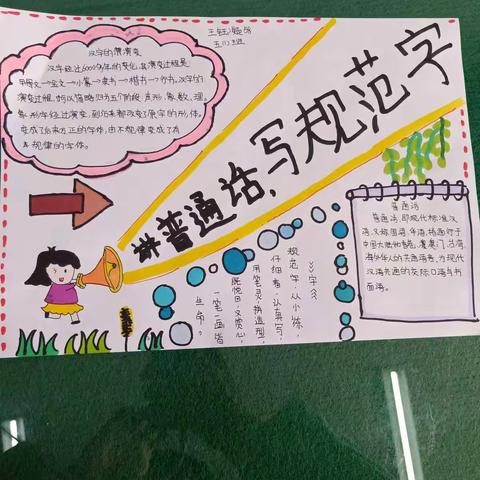 五(1)班
汉字的演变
汉字经过6000多年的变化,其演变过程是
甲骨文→金文→小篆→隶书→楷书→行书。汉字的
演变过程,可以简略归为五个阶段:
象形字经过演变,到后来都改变了原字的形体。
变成了后来方正的字体,由不规律变成了有
规律的字体。
讲普通话,写规范字
普通话
普通话,即现代标准汉
语,又称国语、华语,
中国大陆和香港、澳门、台湾、
海外华人的共通语言,为现代
汉语共通的交际口语与书
面语。
《写字》
规范字,从小练,
仔细看,认真写,
用笔灵,讲造型,
既悦目,又赏心,
一笔一画皆
生命。